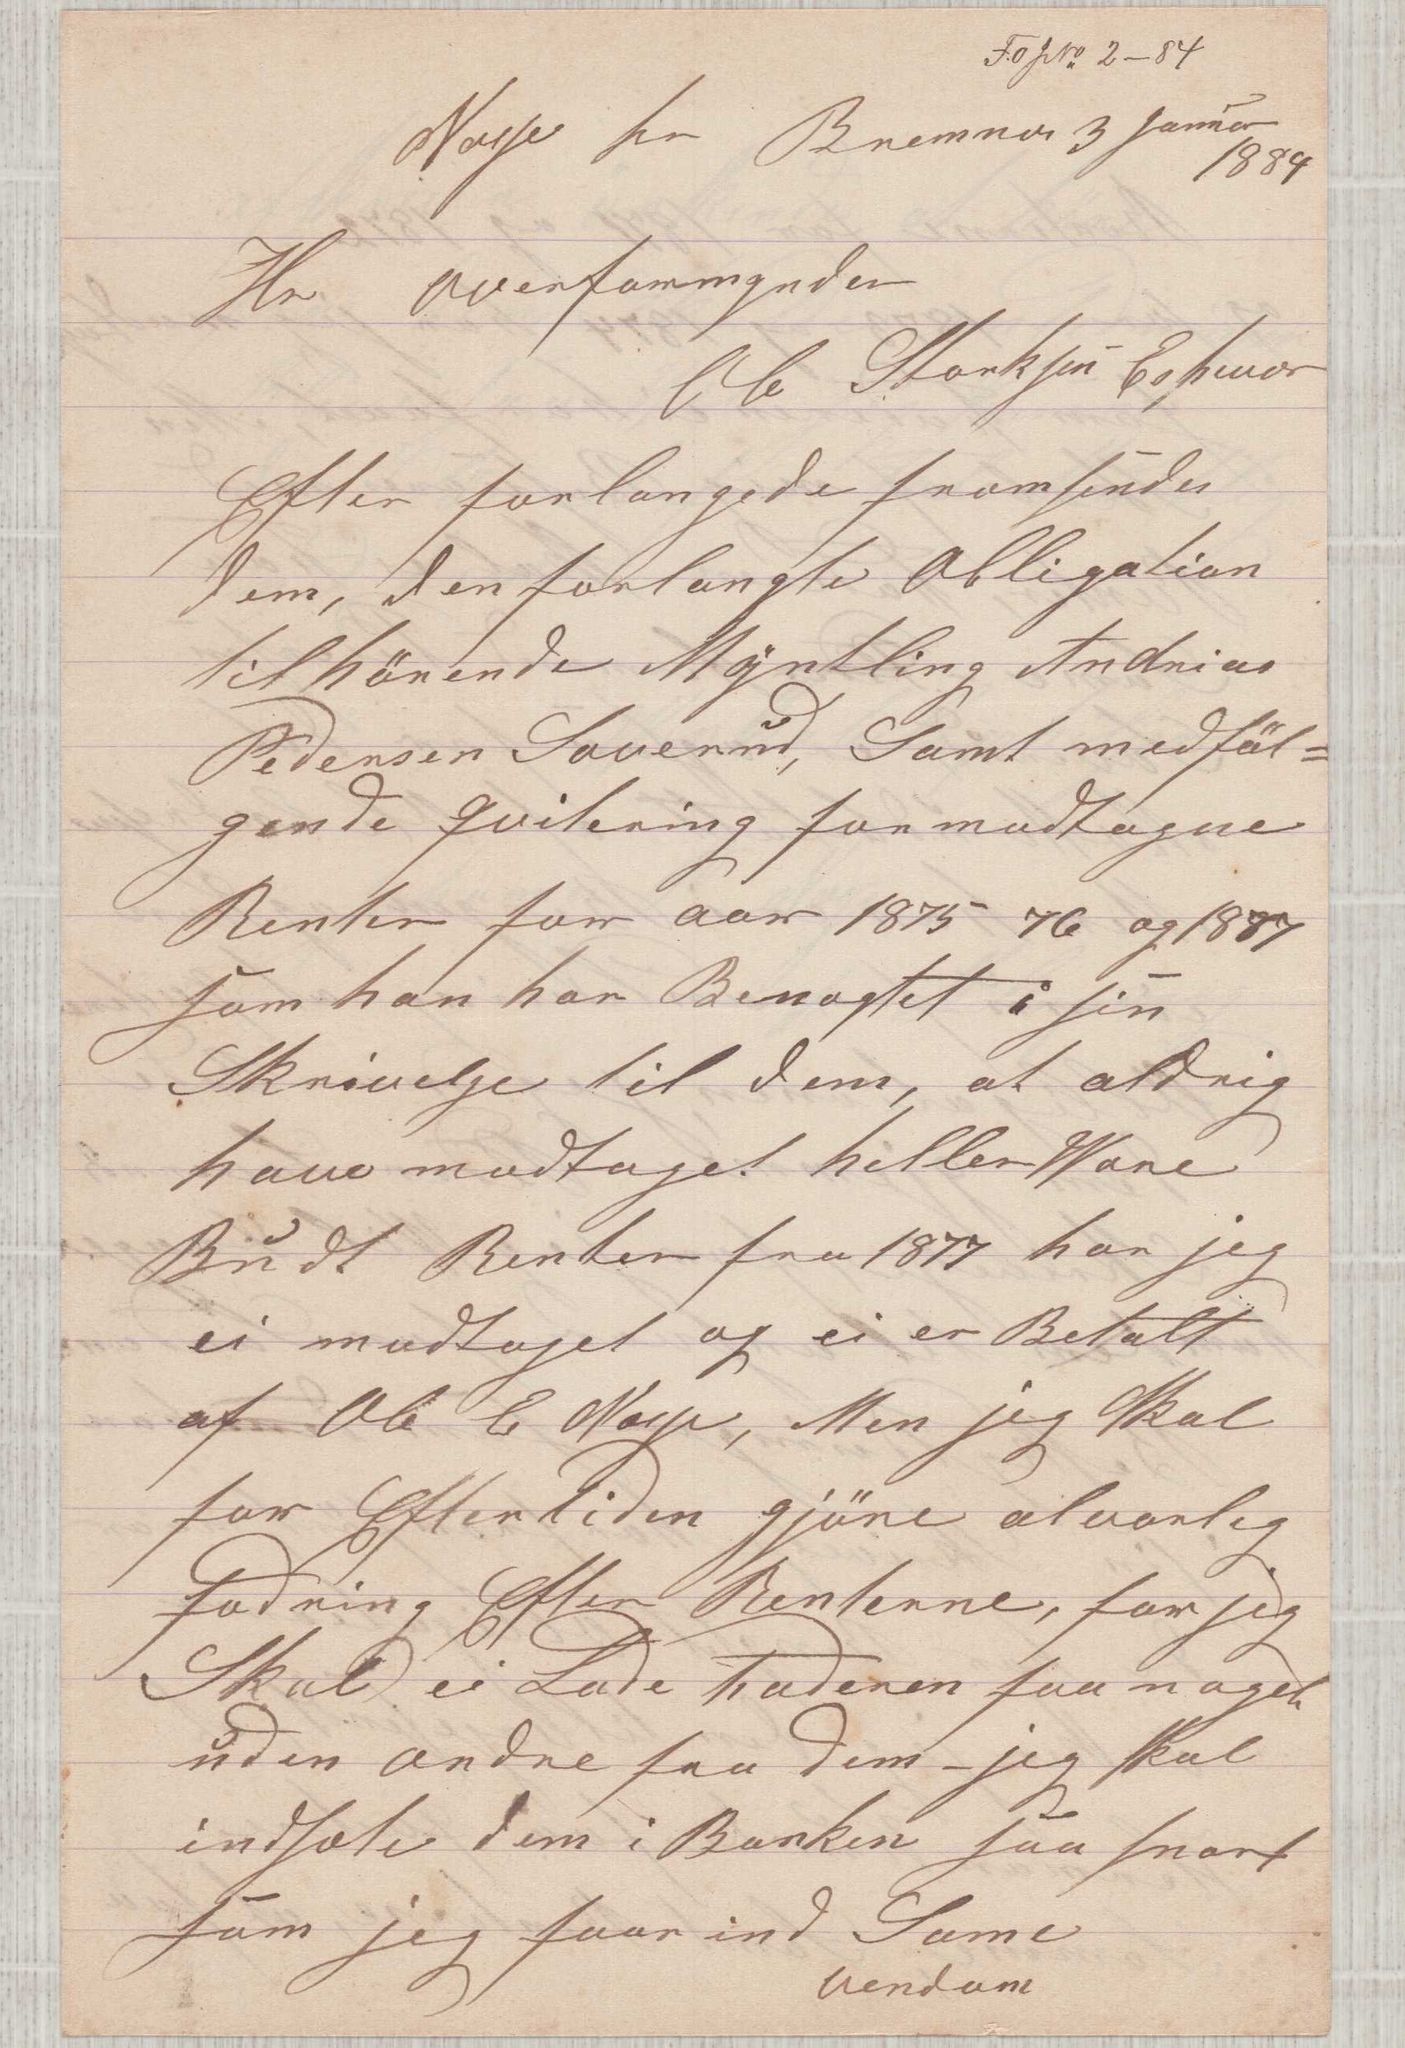 F.O.J No 2–84
Vasse pr Bremnes 3 Januar
1884
Hr overformynder
Ole Størksen Espevær
Efter forlangede fremsendes
dem, den forlangte Obligation
tilhörende Myntling Andrias
Pedersen Loverud, Samt medföl=
gende qvitering for modtagne
Renter for aar 1875 76 og 1877
som han har Benægtet i sin
Skrivelse til dem, at aldrig
have modtaget heller Vare
Budt Renter fra 1877 har jeg
ei modtaget og ei er Betalt
af Ole E Vasse, Men jeg skal
for Eftertiden gjöre alvorlig
fodring Efter Renterne, for jeg
Skal ei Lade faderen faa noget
uden ordre fra dem – jeg skal
indsæte dem i Banken saa snart
som jeg faar ind Same
vendom